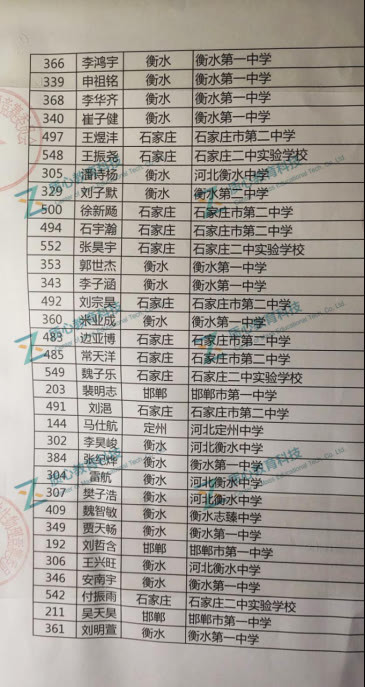 366 李鸿宇 衡水 衡水第一中学
339 申祖铭 衡水 衡水第一中学
368 李华齐 衡水 衡水第一中学
340 崔子健 衡水 衡水第一中学
497 王煜沣 石家庄 石家庄市第二中学
548 王振尧 石家庄 石家庄二中实验学校
305 潘诗扬 衡水 河北衡水中学
329 刘子默 衡水 衡水第二中学
500 徐新飏 石家庄 石家庄市第二中学
494 石宇瀚 石家庄 石家庄市第二中学
552 张昊宇 石家庄 石家庄二中实验学校
353 郭世杰 衡水 衡水第一中学
343 李子涵 衡水 衡水第一中学
492 刘宗昊 石家庄 石家庄市第二中学
360 米业成 衡水 衡水第一中学
483 边亚博 石家庄 石家庄市第二中学
485 常天洋 石家庄 石家庄市第二中学
549 魏子乐 石家庄 石家庄二中实验学校
203 裴明志 邯郸 邯郸市第一中学
491 刘浥 石家庄 石家庄市第二中学
144 马仕航 定州 河北定州中学
302 李昊峻 衡水 河北衡水中学
384 张纪烨 衡水 衡水第一中学
304 雷航 衡水 河北衡水中学
307 樊子浩 衡水 河北衡水中学
409 魏智敏 衡水 衡水志臻中学
349 贾天畅 衡水 衡水第一中学
192 刘哲含 邯郸 邯郸市第一中学
306 王兴旺 衡水 河北衡水中学
346 安南宇 衡水 衡水第一中学
542 付振雨 石家庄 石家庄二中实验学校
211 吴天昊 邯郸 邯郸市第一中学
361 刘明萱 衡水 衡水第一中学